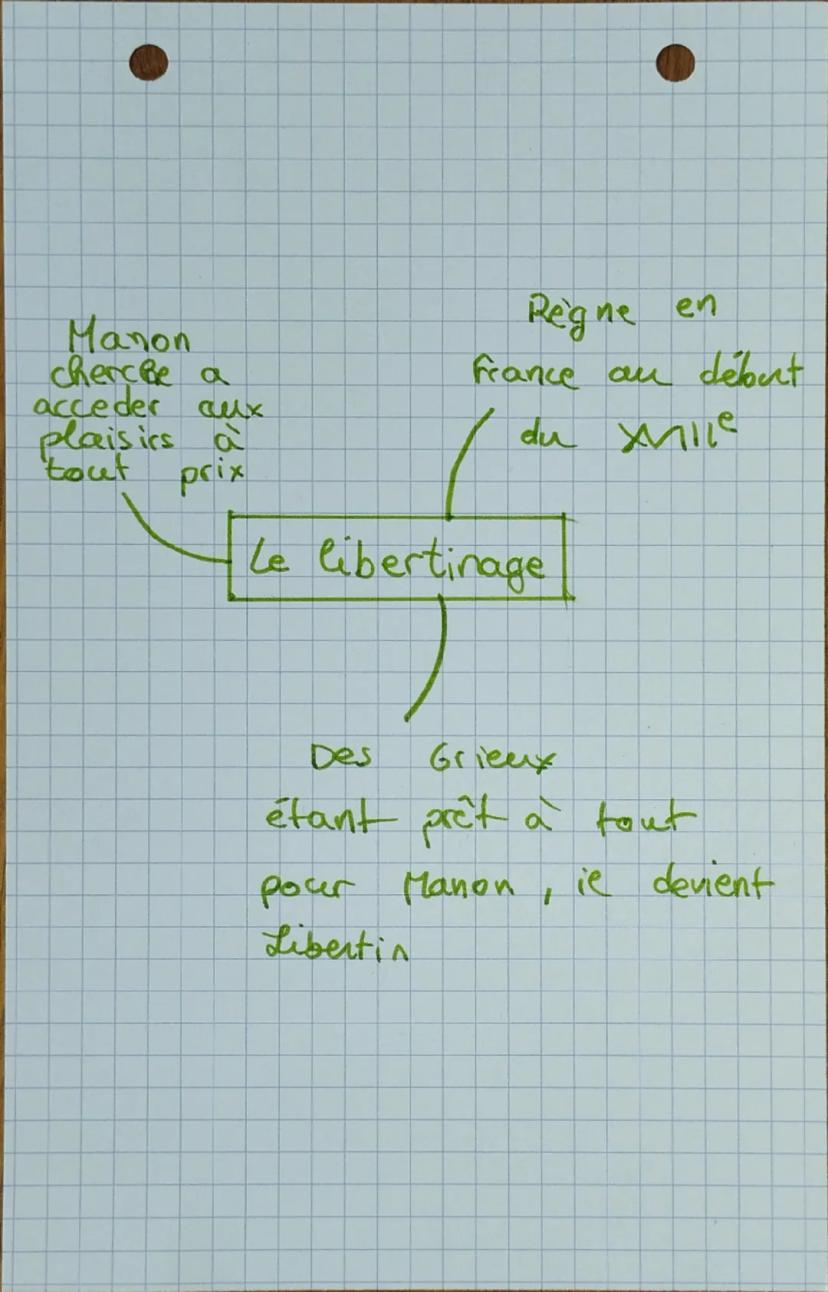 Manon
cherche a
acceder aux
plaisirs à
tout prix
Règne en
France au début
du XVIIIe
Le libertinage
Des Grieux
étant prêt à tout
pour Manon, il devient
Libertin